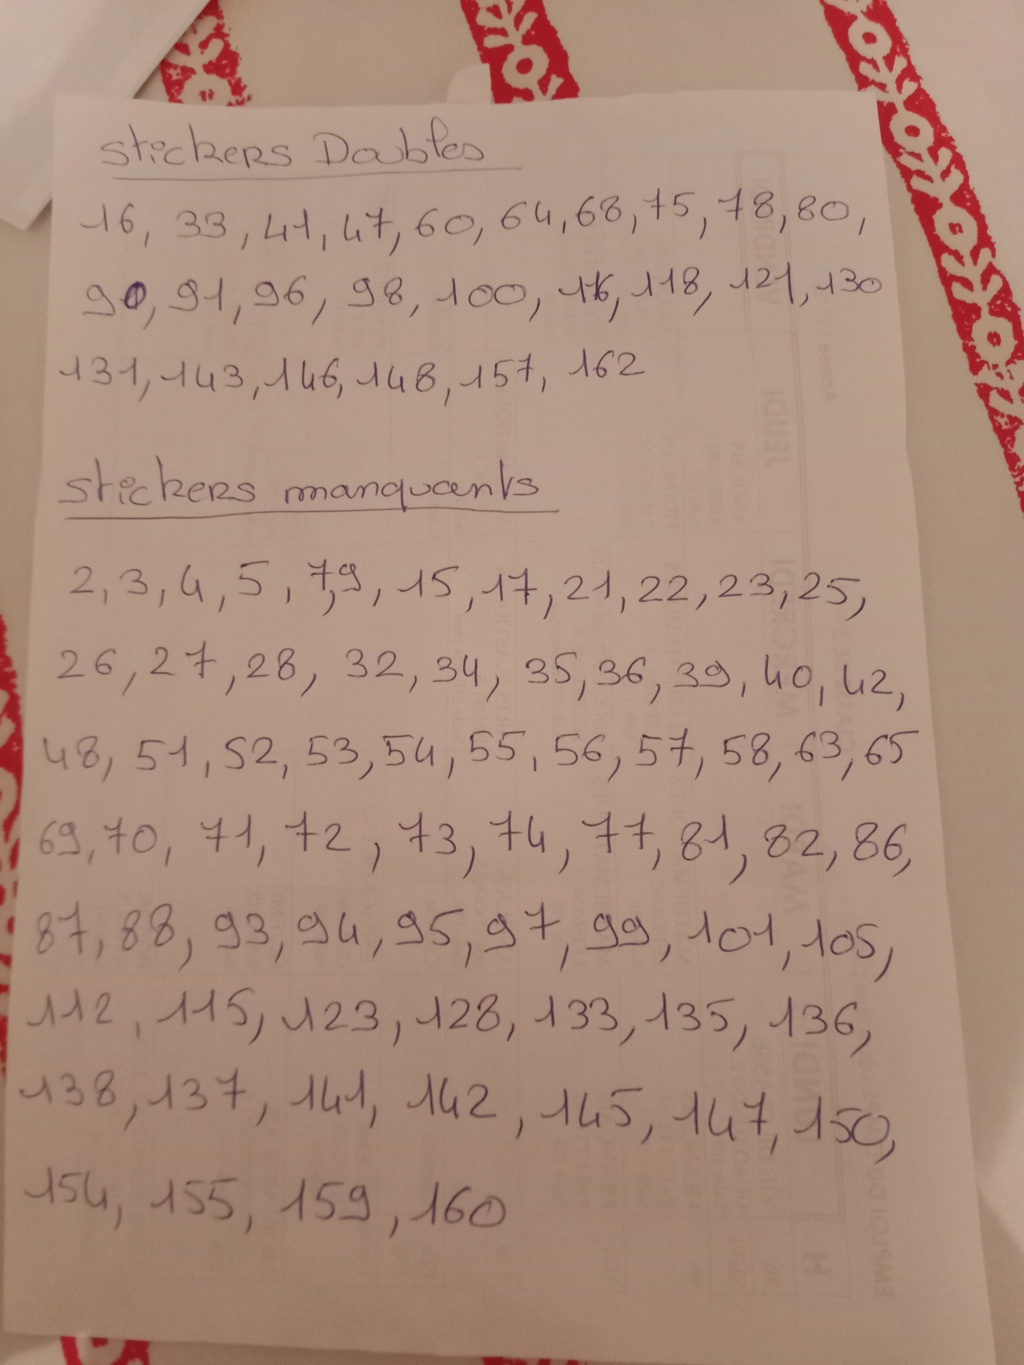 Stickers Doubles
16, 33, 41, 47, 60, 64, 68, 75, 78, 80,
90, 91, 96, 98, 100, 116, 118, 121, 130
131, 143, 146, 148, 157, 162
Stickers manquants
2, 3, 4, 5, 7, 9, 15, 17, 21, 22, 23, 25,
26, 27, 28, 32, 34, 35, 36, 39, 40, 42,
48, 51, 52, 53, 54, 55, 56, 57, 58, 63, 65
69, 70, 71, 72, 73, 74, 77, 81, 82, 86,
87, 88, 93, 94, 95, 97, 99, 101, 105,
112, 115, 123, 128, 133, 135, 136,
138, 137, 141, 142, 145, 147, 150,
154, 155, 159, 160